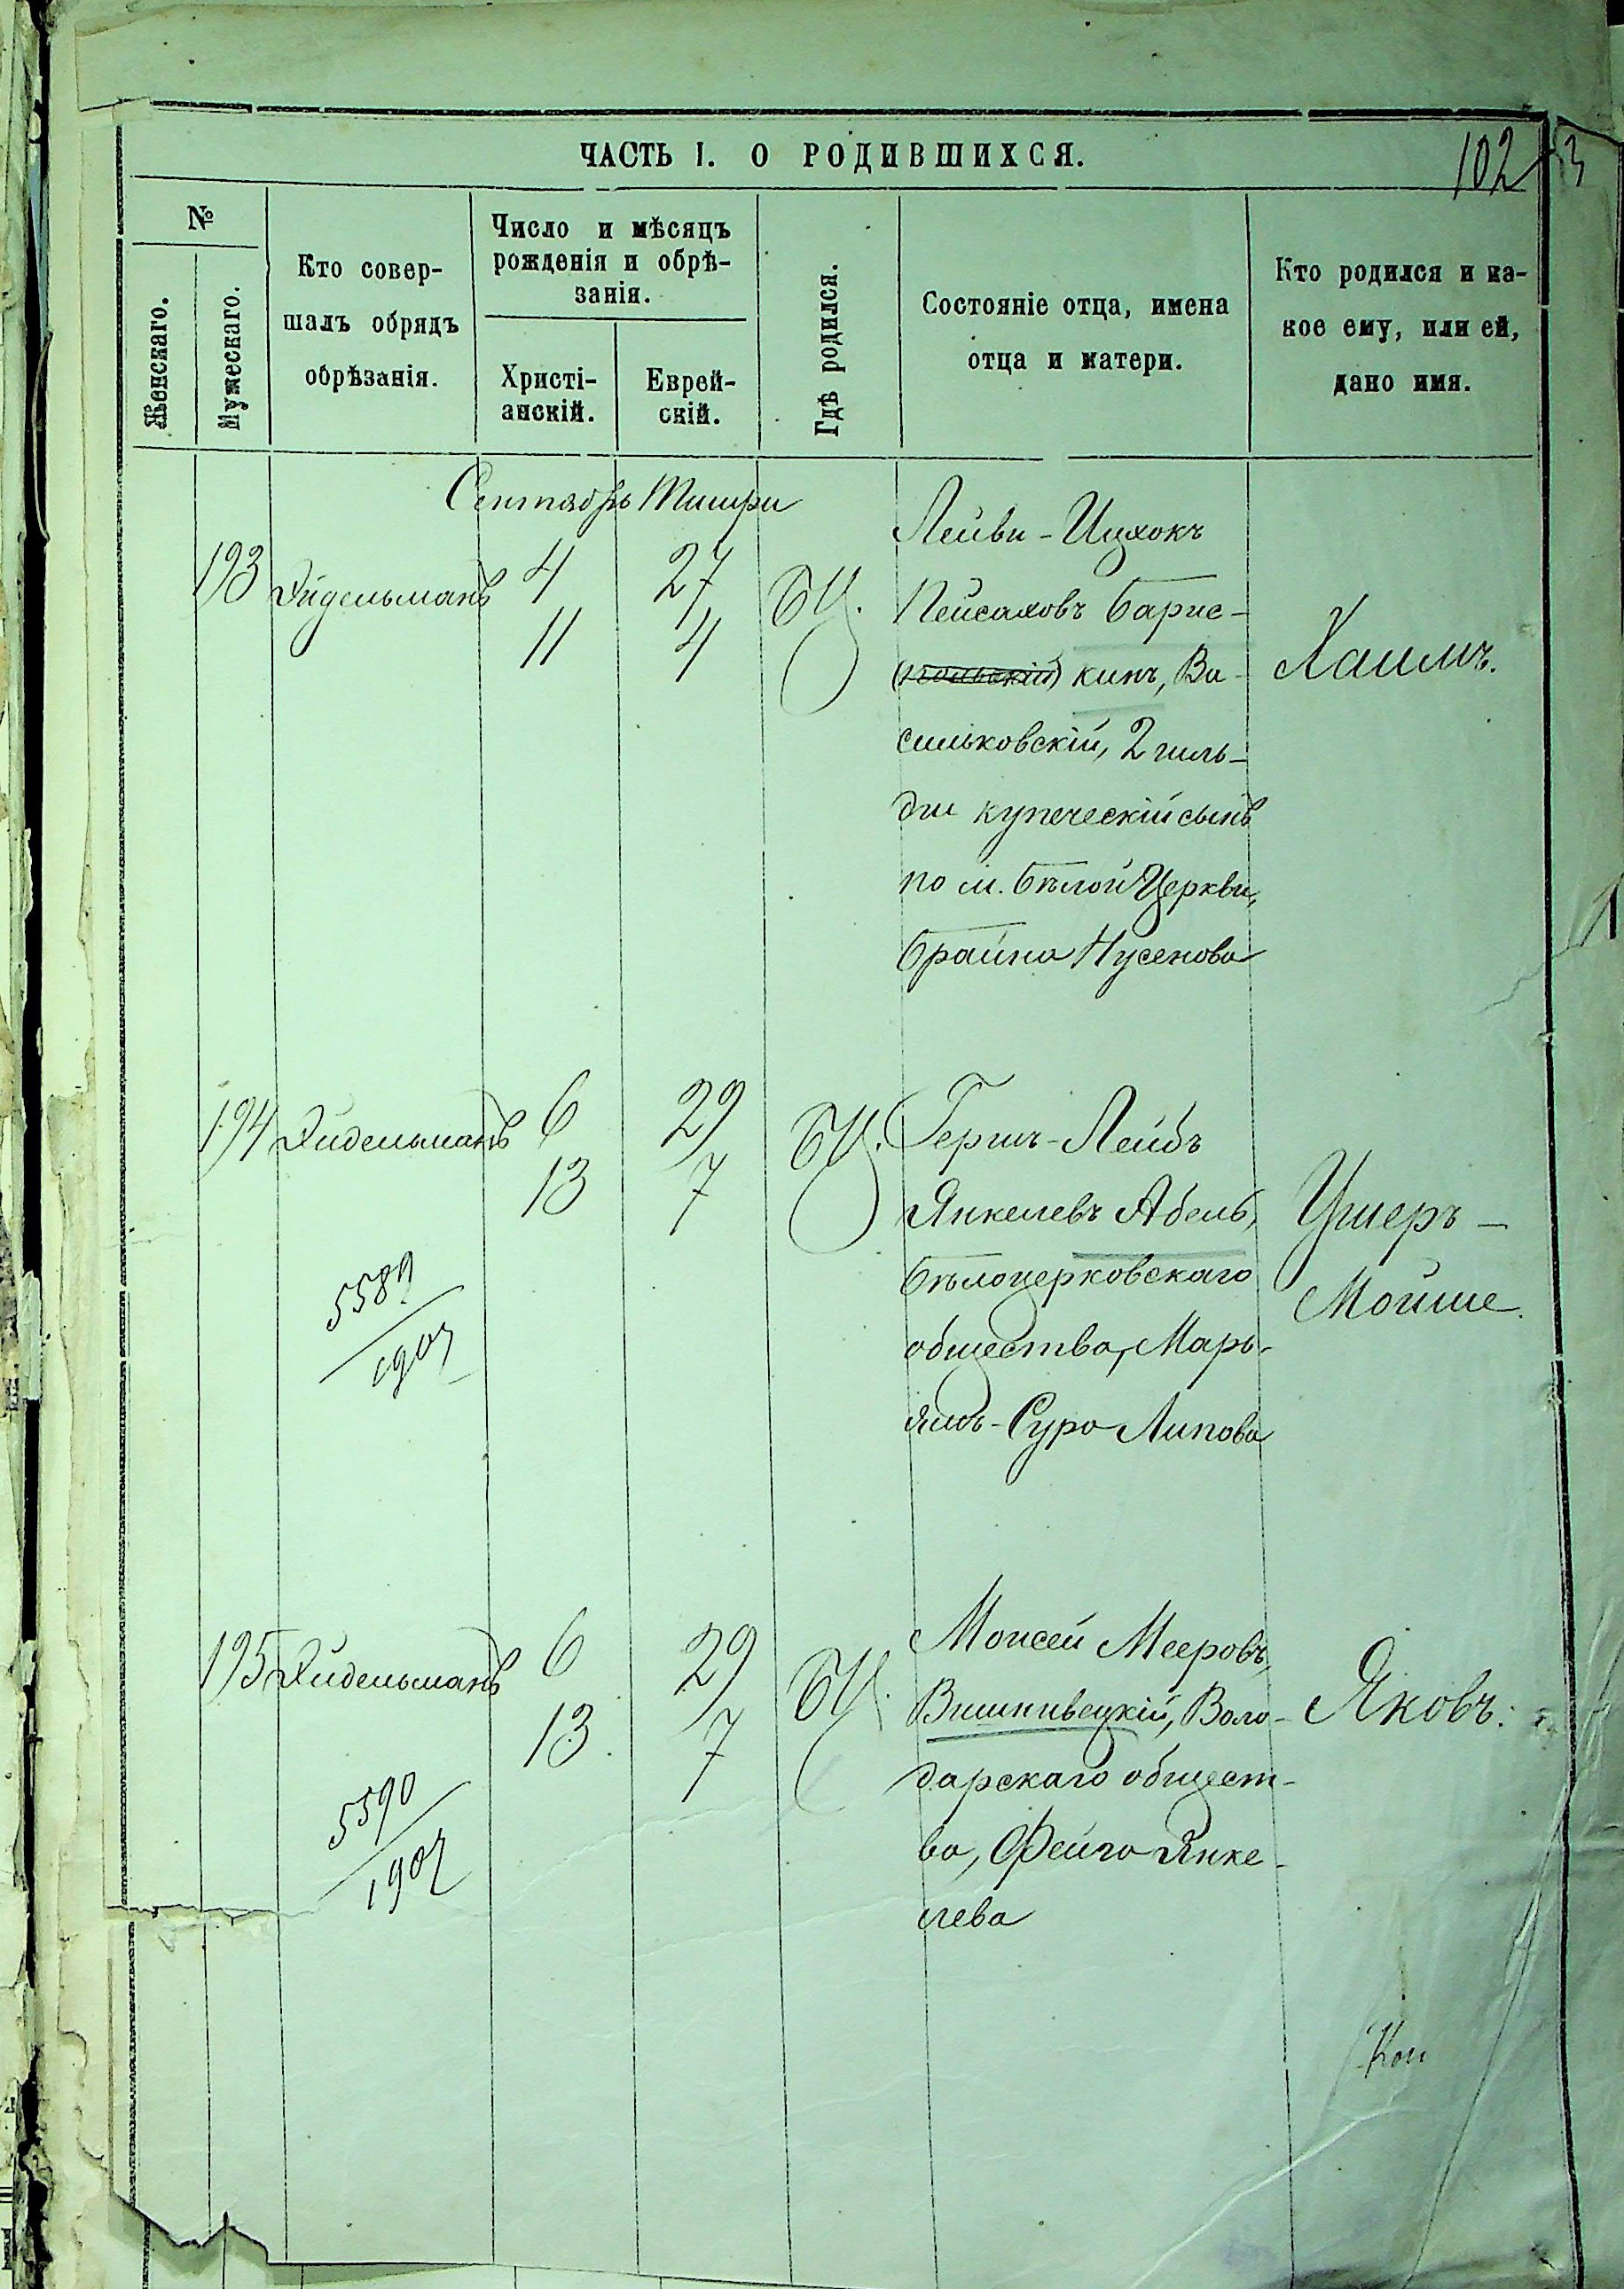 ЧАСТЬ I. О РОДИВШИХСЯ.
102
№
Женскаго.
Мужескаго.
Кто совер-
шалъ обрядъ
обрѣзанія.
Число и мѣсяцъ
рожденія и обрѣ-
занія.
Христі-
анскій.
Еврей-
скій.
Гдѣ родился.
Состояніе отца, имена
отца и матери.
Кто родился и ка-
кое ему, или ей,
дано имя.
Сентябрь Тишри
193 Эйдельманъ 4 27 БЦ.
11 4
Лейви-Ицхокъ
Пейсаховъ Барис-
(польскій) кинъ, Ва-
сильковскій, 2 гиль-
діи купеческій сынъ
по м. Бѣлой Церкви,
Брайна Нусенова
Хаимъ.
194 Эйдельманъ 6 29 БЦ.
13 7
5589
1907
Гершъ-Лейбъ
Янкелевъ Абель,
Бѣлоцерковскаго
общества, Марь-
ямъ-Сура Липова
Ушеръ-
Мойше.
195 Эйдельманъ 6 29 БЦ.
13 7
5590
1907
Моисей Мееровъ,
Вишнивецкій, Воло-
дарскаго общест-
ва, Фейга Янке-
лева
Яковъ.